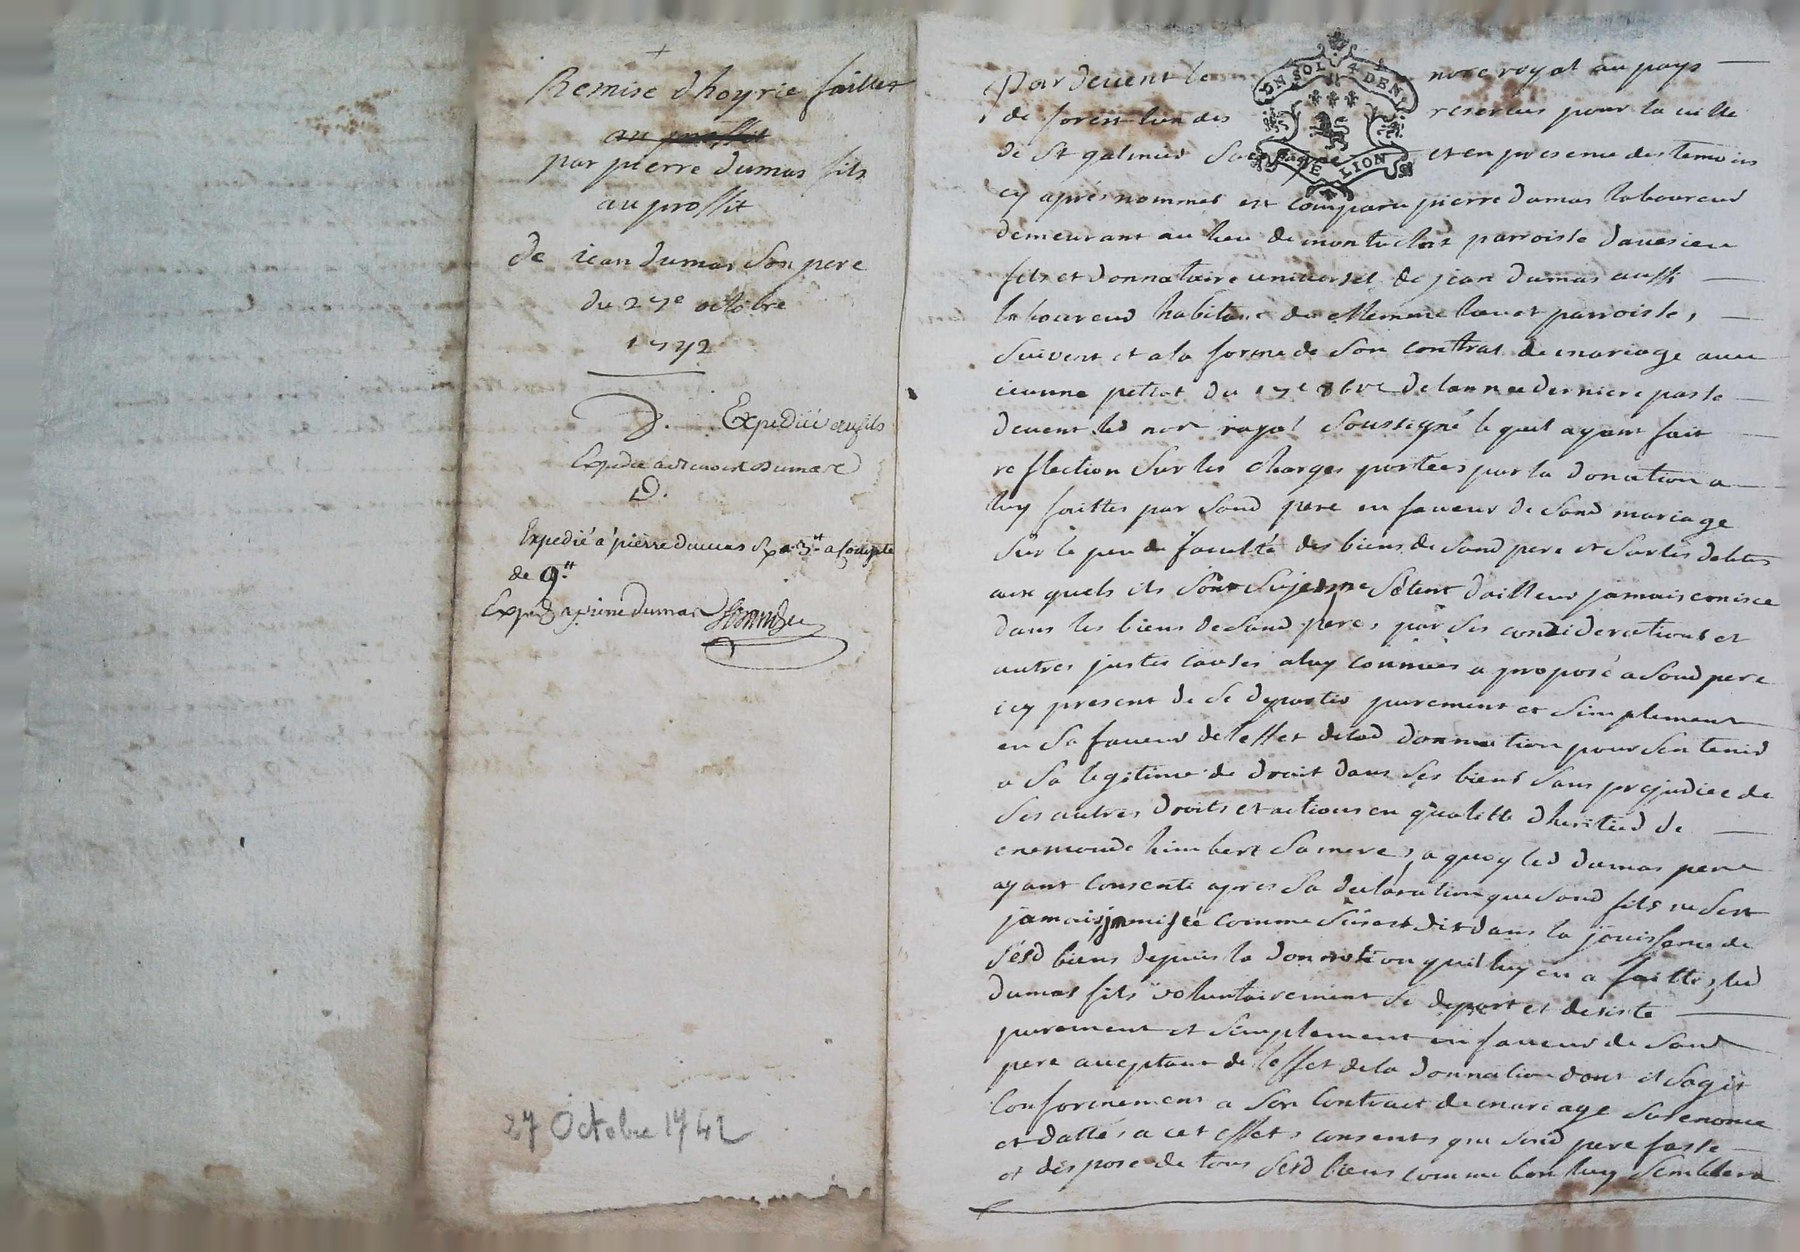 Remise dhoyrie faittes
au proffit
par pierre dumas fils
au proffit
de jean dumas son pere
du 27e octobre
1742
D. Expedié au fils
Expedié a dumas
D.
Expedié a pierre dumas a compte
de 9tt
Exped a pierre dumas
27 Octobre 1742
UN SOL 4 DEN
LION
Par devent le nore royal au pays
de forest lun des reserves pour la ville
de St galmier et en presence des temoins
cy après nommes est comparu pierre dumas laboureur
demeurant au lieu de montuclas parroisse davesieu
fils et donnataire universel de jean dumas aussi
laboureur habitant du mesme lieu et parroisse,
suivent et a la forme de son contrat de mariage avec
jeanne du 17e 8bre de lannee derniere passe
devent led nore royal soussigné lequel ayant fait
reflection sur les charges portées par la donation a
luy faittes par sond pere en faveur de sond mariage
sur le peu de faculté des biens de sond pere et sur les debtes
aux quels ils sont sujets ne setent dailleur jamais emisce
dans les biens de sond pere, par ses considerations et
autres justes causes a luy connues a proposé a sond pere
icy present de se departir purement et simplement
en sa faveur de leffet de lad donnation pour sen tenir
a sa legitime de droit dans ses biens sans prejudice de
ses autres droits et actions en qualitté dheritier de
enemonde himbert sa mere, a quoy led dumas pere
ayant consenti apres sa declaration que sond fils ne sest
jamais jmisçé comme susest dit dans la jouissence de
sesd biens depuis la donnation quil luy en a faitte, led
dumas fils volontairement se depart et desiste
purement et simplement en faveur de sond
pere acceptant de leffet de la donnation dont il sagit
conformement a son contract de mariage susenoncé
et datté a cet effet, consents que sond pere fasse
et dispose de tous sesd biens comme bon luy semblera